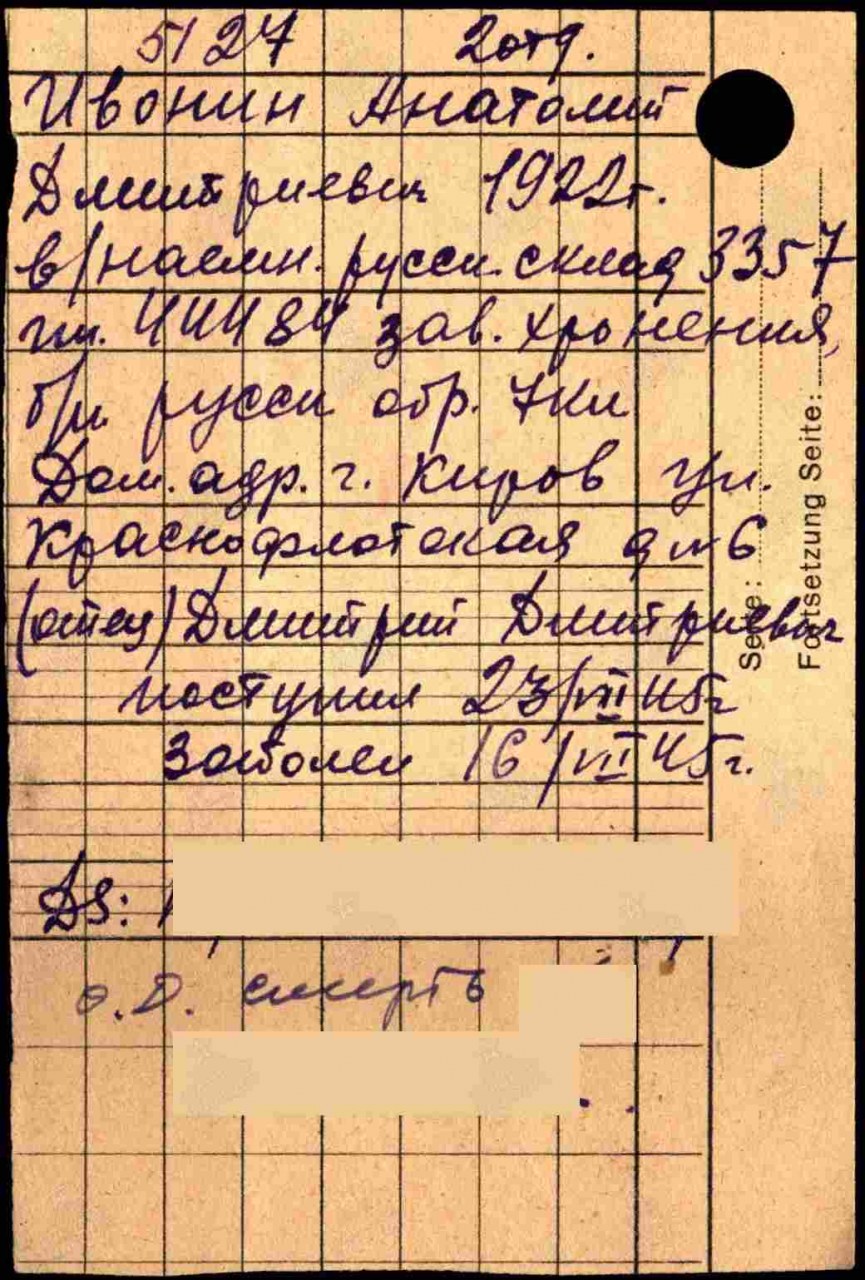 5127 2отд.
Ивонин Анатолий
Дмитриевич 1922г.
в/наемн. русск. склад 3357
пп. 44484 зав. хронения,
б/п. русск обр. 7кл
Дом. адр. г. Киров ул.
Краснофлотская д №6
(отец) Дмитрий Дмитриевич
поступил 23/VII 45г
Заболел 16/VII 45г.
DS:
о.D. смерть
Seite:
Fortsetzung Seite: